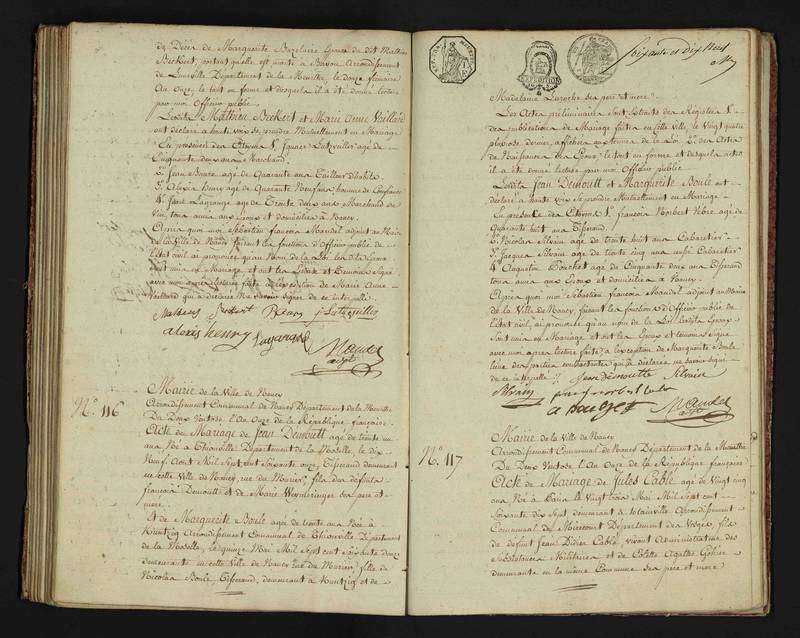 de Décès de Marguerite Bazelaire Epouse du dit Mathieu
Beckert, portant qu'elle est morte à Bayon Arrondissement
de Luneville Département de la Meurthe, le douze
An Onze, le tout en forme et desquels il a été donné lecture
par moi Officier public.
Lesdits Mathieu Beckert et Marie Anne Vaillard
ont déclaré à haute voix se prendre Mutuellement en Mariage
En présence des Citoyens 1°. Lutzviller agé de
Cinquante deux ans Marchand.
2°. Jean agé de Quarante ans Tailleur d'habits
3°. Alexis henry agé de Quarante Neuf ans, homme de Confiance
4°. Lagrange agé de Trente deux ans Marchand de
Vin, tous amis aux Epoux et domiciliés à Nancy.
Après quoi moi Sébastien françois Mandel adjoint au Maire
de la Ville de Nancy faisant les fonctions d'Officier public de
l'état civil ai prononcé qu'au Nom de la Loi lesdits Epoux
sont unis en Mariage et ont les Epoux et Témoins signé
avec moi après lecture faite à l'exception de Marie Anne
Vaillard qui a déclaré ne savoir signer de ce interpellée
Matheus Beckert henry j: Lutzviller
alexis henry Lagrange
Mandel
adjt
N°. 116
Mairie de la Ville de Nancy
Arrondissement Communal de Nancy Département de la Meurthe
Du Deux Ventose l'An Onze de la République française.
Acte de Mariage de Jean Demoutt agé de trente un
ans Né à Thionville Département de la Moselle, le dix
Neuf Aout Mil Sept cent Soixante onze, Tisserand demeurant
en cette Ville de Nancy rue du Murier, fils des defunts
françois Demoutt et de Marie ses père et
mère.
Et de Marguerite Boulé agée de trente ans Née à
Kuntzig Arrondissement Communal de Thionville Département
de la Moselle, le quinze Mai Mil Sept cent Soixante douze
demeurante en cette Ville de Nancy rue du Murier, fille de
Nicolas Boulé Tisserand, demeurant à Kuntzig et de
Soixante et dix Neuf
Madelaine Laroche ses père et mere.
Les Actes preliminaires sont Extraits des Régistres 1°.
des publications de Mariage faites en cette ville, le Vingt quatre
pluviose dernier, affichées aux termes de la Loi. 2°. des Actes
de Naissances des Epoux; le tout en forme et desquels actes
il a été donné lecture par moi Officier public.
Lesdits Jean Demoutt et Marguerite Boulé ont
déclaré à haute voix se prendre Mutuellement en Mariage
En présence des Citoyens 1°. françois Norbert agé de
Quarante huit ans Tisserand.
2°. Nicolas Silvain agé de trente huit ans Cabaretier
3°. Jacques Silvain agé de trente cinq ans aussi Cabaretier
4°. Augustin agé de Cinquante deux ans Tisserand
tous amis aux Epoux et domiciliés à Nancy.
Après quoi moi Sébastien françois Mandel adjoint au Maire
de la Ville de Nancy, faisant les fonctions d'Officier public de
l'état civil, ai prononcé qu'au nom de la Loi lesdits Epoux
sont unis en Mariage et ont les Epoux et témoins signé
avec moi après lecture faite, à l'exception de Marguerite Boulé
l'une des parties contractantes qui a déclaré ne savoir signer
de ce interpellée. Jean Demoutte Silvain
Silvain
Mandel
adjt
N°. 117
Mairie de la Ville de Nancy
Arrondissement Communal de Nancy Département de la Meurthe
Du Deux Ventose l'An Onze de la République française
Acte de Mariage de Jules Cablé agé de Vingt cinq
ans Né à Paris le Vingt trois Mai Mil Sept cent
Soixante dix Sept demeurant à Arrondissement
Communal de Mirecourt Département des Vosges, fils
de défunt Jean Didier Cablé, vivant Administrateur des
Subsistances Militaires et de Colette Agathe
demeurante en la même Commune ses père et mere